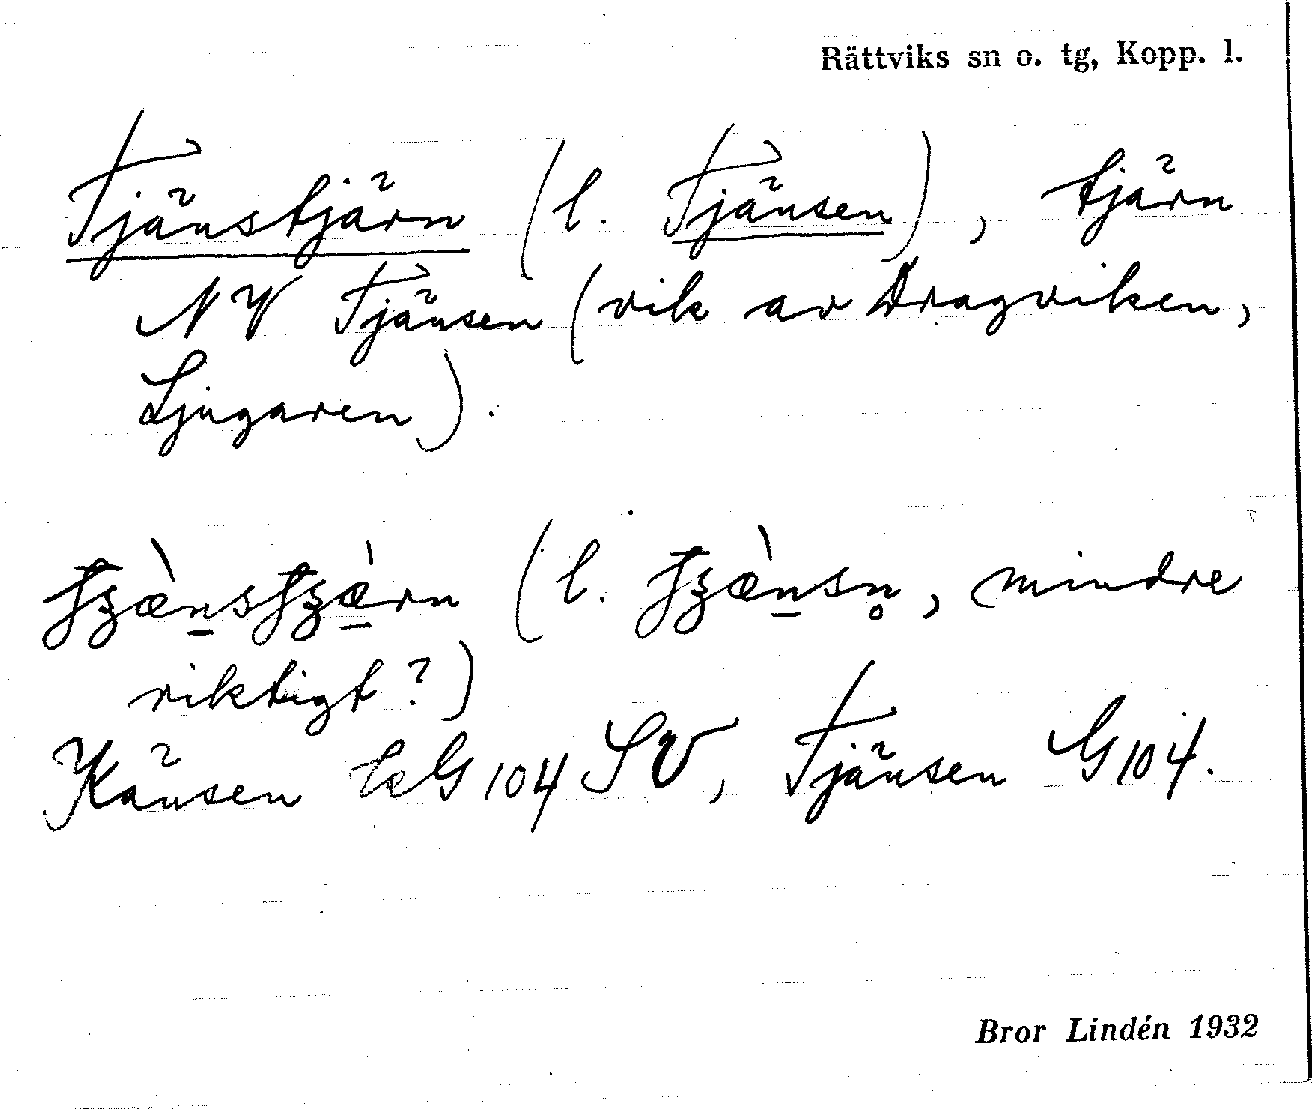 Rättviks sn o. tg, Kopp. l.
Tjänstjärn (l. Tjänsen), tjärn
NV Tjänsen (vik av Dragviken,
Ljugaren).
(l. mindre
riktigt?)
Känsen G104 SV, Tjänsen G104.
Bror Lindén 1932